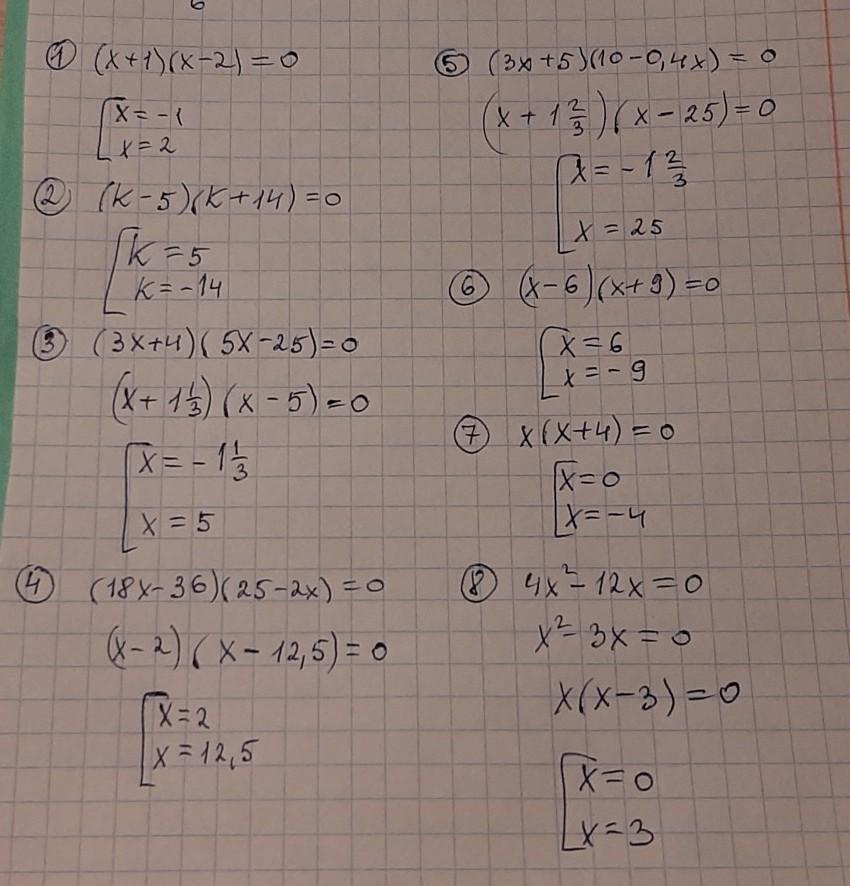 ① (x+1)(x-2) = 0
[x = -1
x = 2
② (k-5)(k+14) = 0
[k = 5
k = -14
③ (3x+4)(5x-25) = 0
(x + 1 1/3)(x - 5) = 0
[x = -1 1/3
x = 5
④ (18x-36)(25-2x) = 0
(x-2)(x-12,5) = 0
[x = 2
x = 12,5
⑤ (3x+5)(10-0,4x) = 0
(x + 1 2/3)(x - 25) = 0
[x = -1 2/3
x = 25
⑥ (x-6)(x+9) = 0
[x = 6
x = -9
⑦ x(x+4) = 0
[x = 0
x = -4
⑧ 4x² - 12x = 0
x² - 3x = 0
x(x-3) = 0
[x = 0
x = 3